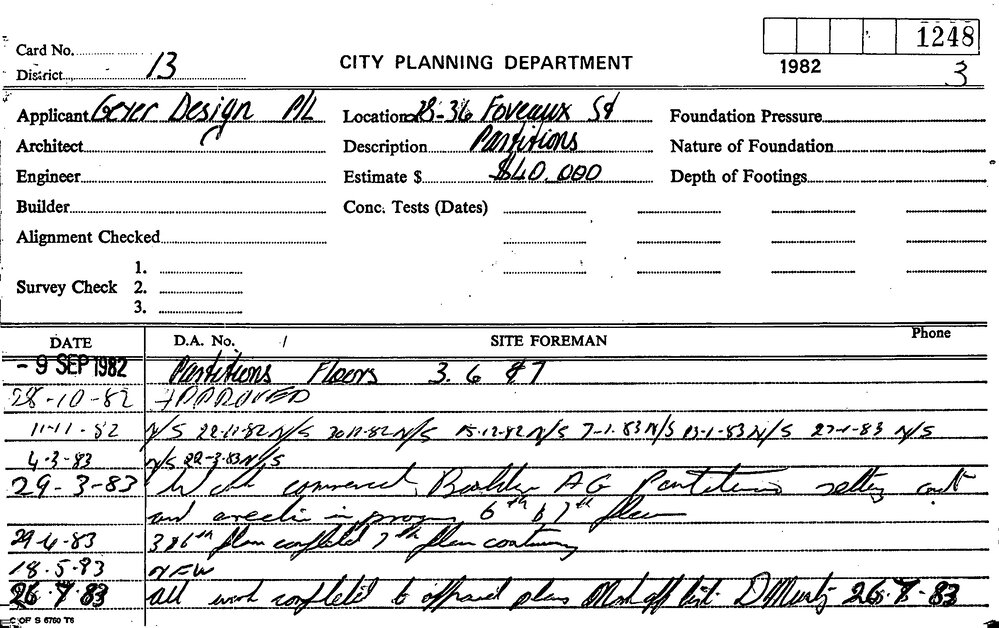 1248
Card No.
District 13
CITY PLANNING DEPARTMENT
1982
3
Applicant Geyer Design P/L Location 28-36 Foveaux St Foundation Pressure
Architect Description Partitions Nature of Foundation
Engineer Estimate $ $40.000 Depth of Footings
Builder Conc. Tests (Dates)
Alignment Checked
1.
Survey Check 2.
3.
DATE D.A. No. / SITE FOREMAN Phone
- 9 SEP 1982 Partitions Floors 3. 6 & 7
28-10-82 APPROVED
11-11-82 N/S 22-11-82 N/S 30-11-82 N/S 15-12-82 N/S 7-1-83 N/S 13-1-83 N/S 27-1-83 N/S
4-3-83 N/S 22-3-83 N/S
29-3-83 Work commenced, Builder AG Partitions setting out
and erection in progress 6th & 7th floor
29-4-83 3 & 6th floor completed 7th floor continuing
18.5.83 NFW
26.7.83 All work completed to approved plans Mark off list. 26.7.83
C OF S 6760 T6